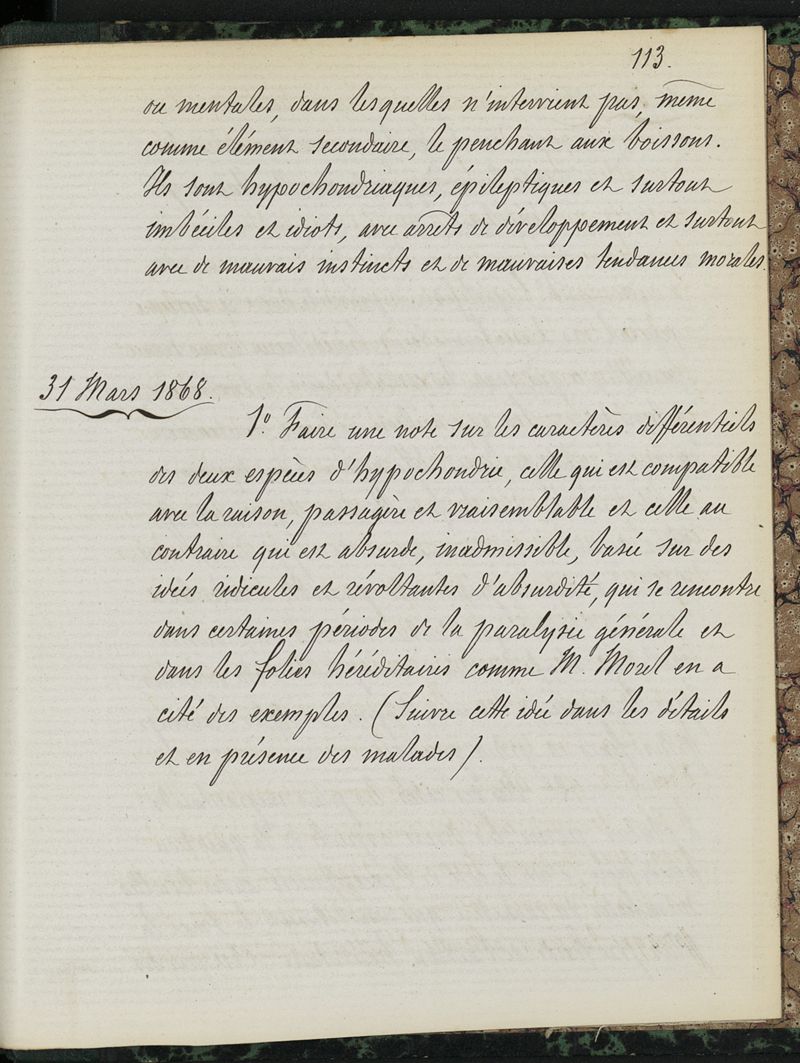 113.
ou mentales, dans lesquelles n'intervient pas, même
comme élément secondaire, le penchant aux boissons.
Ils sont hypochondriaques, épileptiques et surtout
imbéciles et idiots, avec arrêts de développement et surtout
avec de mauvais instincts et de mauvaises tendances morales.
31 Mars 1868.
1º. Faire une note sur les caractères différentiels
des deux espèces d'hypochondrie, celle qui est compatible
avec la raison, passagère et vraisemblable et celle au
contraire qui est absurde, inadmissible, basée sur des
idées ridicules et révoltantes d'absurdité, qui se rencontre
dans certaines périodes de la paralysie générale et
dans les folies héréditaires comme M. Morel en a
cité des exemples. (Suivre cette idée dans les détails
et en présence des malades).